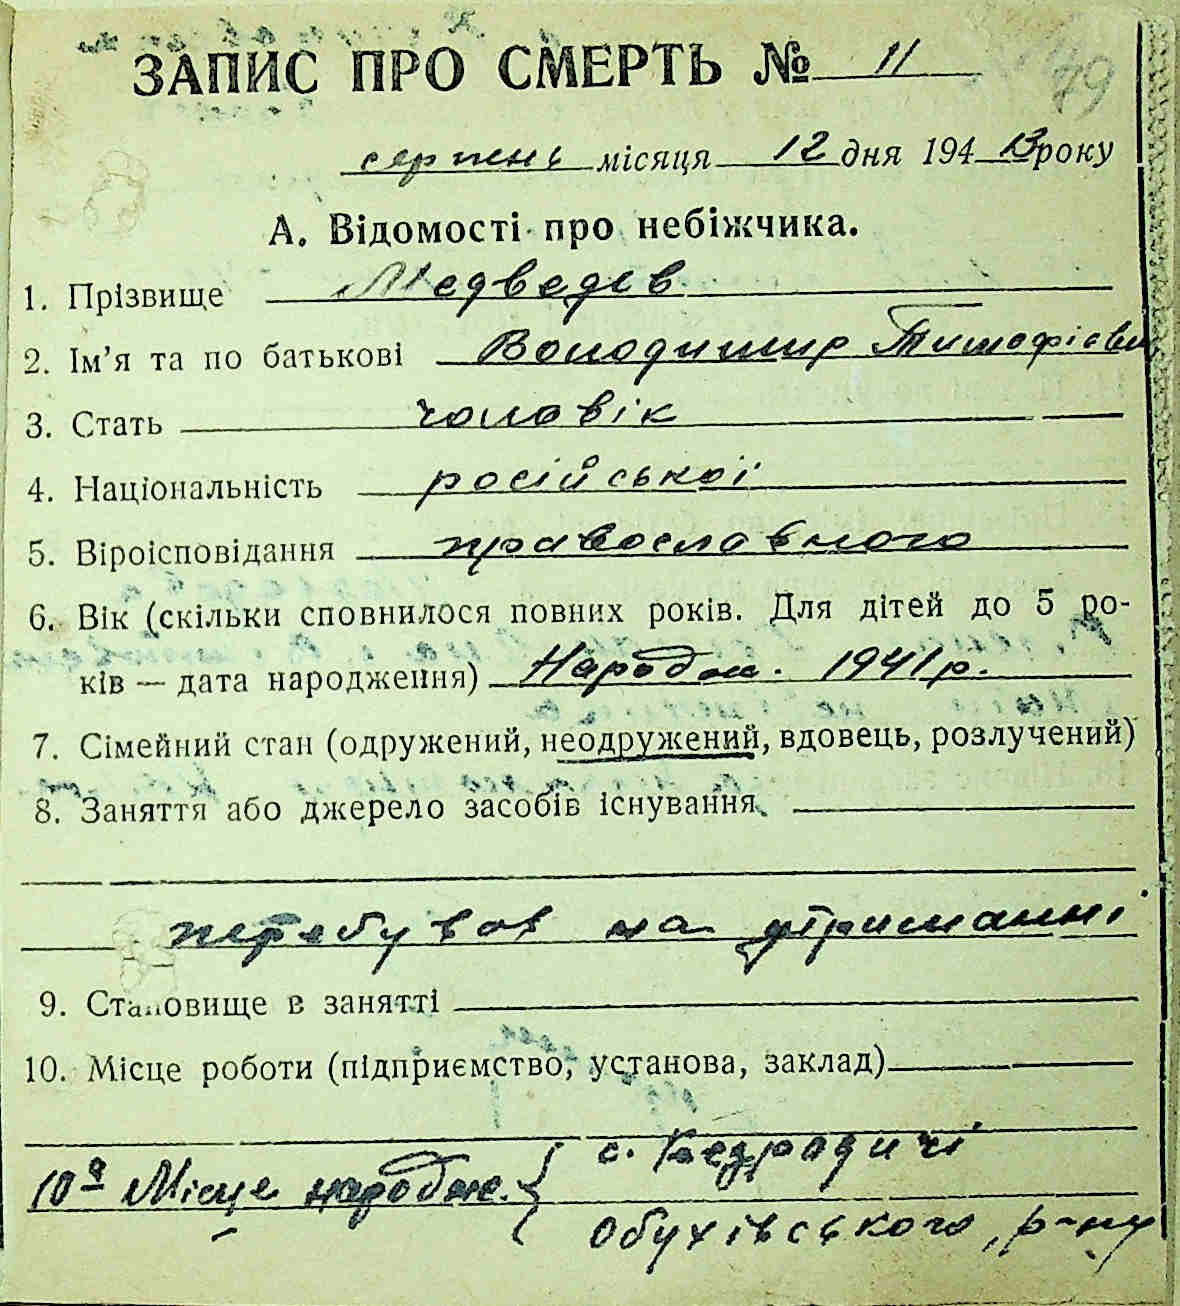 ЗАПИС ПРО СМЕРТЬ № 11
79
серпень місяця 12 дня 194 3 року
А. Відомості про небіжчика.
1. Прізвище Медведєв
2. Ім'я та по батькові Володимир Тимофієви
3. Стать чоловік
4. Національність російської
5. Віроісповідання православного
6. Вік (скільки сповнилося повних років. Для дітей до 5 ро-
ків — дата народження) Народж. 1941 р.
7. Сімейний стан (одружений, неодружений, вдовець, розлучений)
8. Заняття або джерело засобів існування
перебував на утриманні
9. Становище в занятті
10. Місце роботи (підприємство, установа, заклад)
с.
10а Місце народж.
Обухівського р-ну